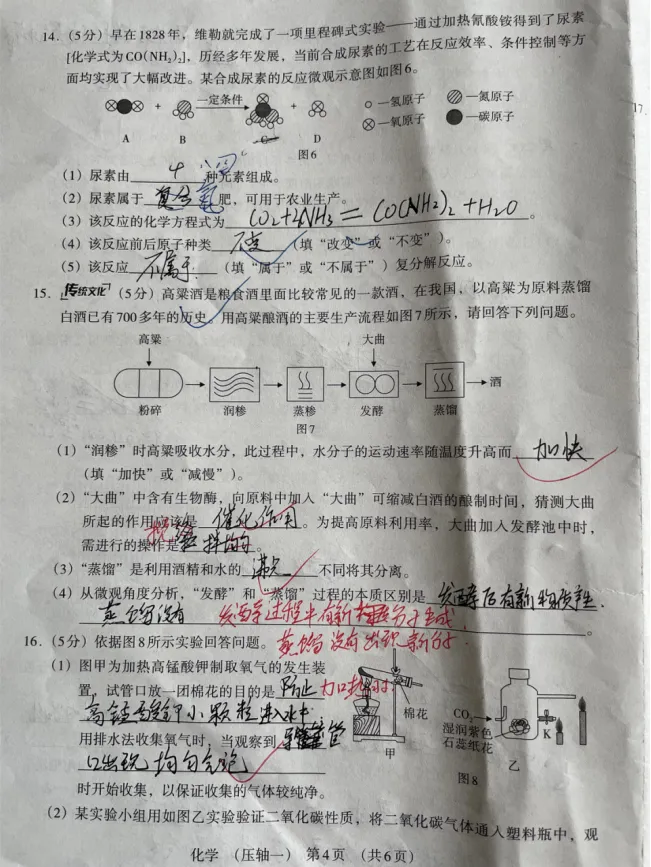 14.（5分）早在1828年，维勒就完成了一项里程碑式实验——通过加热氰酸铵得到了尿素
[化学式为CO(NH₂)₂]，历经多年发展，当前合成尿素的工艺在反应效率、条件控制等方
面均实现了大幅改进。某合成尿素的反应微观示意图如图6。
一定条件
A B C D
—氢原子 —氮原子
—氧原子 —碳原子
图6
（1）尿素由 4 种元素组成。
（2）尿素属于 复合 氮 肥，可用于农业生产。
（3）该反应的化学方程式为 CO2+2NH3 = CO(NH2)2+H2O 。
（4）该反应前后原子种类 不变 （填“改变”或“不变”）。
（5）该反应 不属于 （填“属于”或“不属于”）复分解反应。
15. 传统文化 （5分）高粱酒是粮食酒里面比较常见的一款酒，在我国，以高粱为原料蒸馏
白酒已有700多年的历史。用高粱酿酒的主要生产流程如图7所示，请回答下列问题。
高粱 大曲
酒
粉碎 润糁 蒸糁 发酵 蒸馏
图7
（1）“润糁”时高粱吸收水分，此过程中，水分子的运动速率随温度升高而 加快
（填“加快”或“减慢”）。
（2）“大曲”中含有生物酶，向原料中加入“大曲”可缩减白酒的酿制时间，猜测大曲
所起的作用应该是 催化作用 。为提高原料利用率，大曲加入发酵池中时，
需进行的操作是 拌均匀 。
（3）“蒸馏”是利用酒精和水的 沸点 不同将其分离。
（4）从微观角度分析，“发酵”和“蒸馏”过程的本质区别是 发酵后有新物质产生
蒸馏没有 发酵过程中有新分子生成 。
蒸馏没有出现新分子
16.（5分）依据图8所示实验回答问题。
（1）图甲为加热高锰酸钾制取氧气的发生装
置，试管口放一团棉花的目的是 防止 加热时
高锰酸钾小颗粒进入水中
用排水法收集氧气时，当观察到 导管
口出现均匀气泡
时开始收集，以保证收集的气体较纯净。
棉花
甲
CO₂
湿润紫色
石蕊纸花
K
乙
图8
（2）某实验小组用如图乙实验验证二氧化碳性质，将二氧化碳气体通入塑料瓶中，观
化学 （压轴一） 第4页 （共6页）
17.